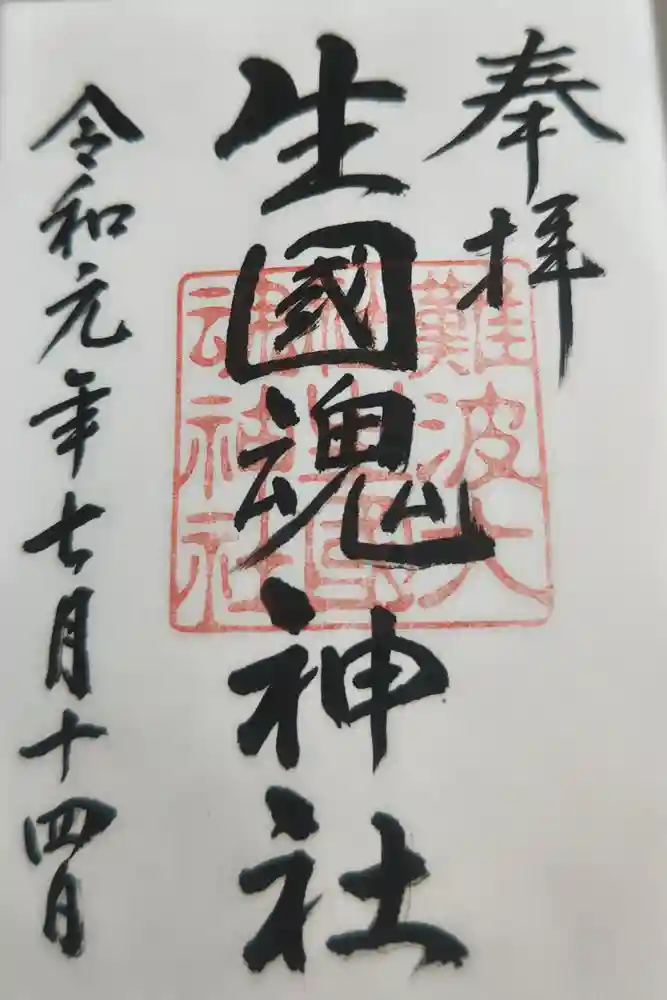 奉拝
生國魂神社
難波大
神生國
魂神社
令和元年七月十四日